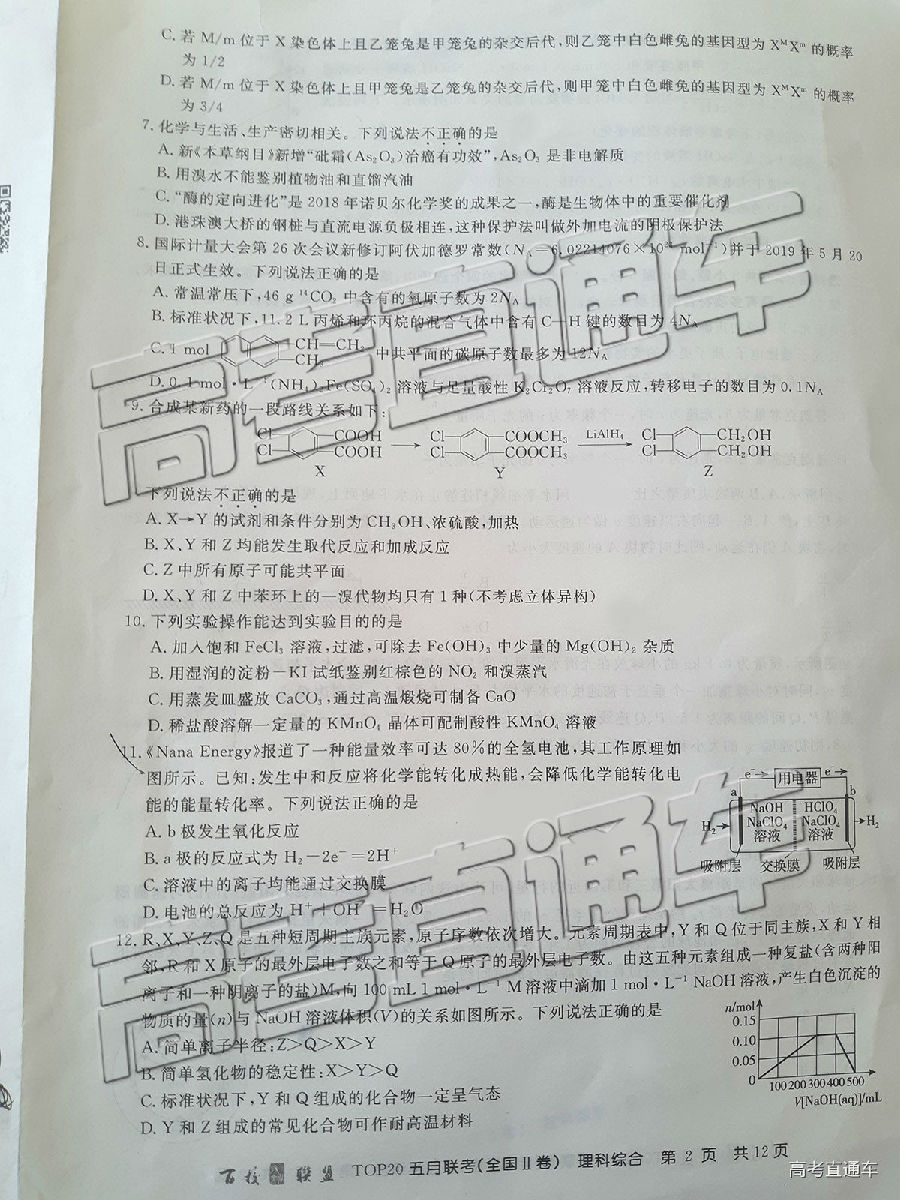 C.若 M/m 位于 X 染色体上且乙笼兔是甲笼兔的杂交后代,则乙笼中白色雌兔的基因型为 XᴹXᵐ 的概率
为 1/2
D.若 M/m 位于 X 染色体上且甲笼兔是乙笼兔的杂交后代,则甲笼中白色雌兔的基因型为 XᴹXᵐ 的概率
为 3/4
7.化学与生活、生产密切相关。下列说法不正确的是
A.新《本草纲目》新增“砒霜(As₂O₃)治癌有功效”,As₂O₃ 是非电解质
B.用溴水不能鉴别植物油和直馏汽油
C.“酶的定向进化”是 2018 年诺贝尔化学奖的成果之一,酶是生物体中的重要催化剂
D.港珠澳大桥的钢桩与直流电源负极相连,这种保护法叫做外加电流的阴极保护法
8.国际计量大会第 26 次会议新修订阿伏加德罗常数(N_A=6.02214076×10 mol)并于 2019 年 5 月 20
日正式生效。下列说法正确的是
A.常温常压下,46 g ¹⁴CO₂ 中含有的氧原子数为 2N_A
B.标准状况下,11.2 L 丙烯和环丙烷的混合气体中含有 C—H 键的数目为 4N_A
C.1 mol CH—CH₂ CH 中共平面的碳原子数最多为 12N_A
D.0.1 mol·L⁻¹(NH₄)₂Fe(SO₄)₂ 溶液与足量酸性 K₂Cr₂O₇ 溶液反应,转移电子的数目为 0.1N_A
9.合成某新药的一段路线关系如下:
Cl COOH → Cl COOCH₃ LiAlH₄ Cl CH₂OH
Cl COOH Cl COOCH₃ Cl CH₂OH
X Y Z
下列说法不正确的是
A.X→Y 的试剂和条件分别为 CH₃OH、浓硫酸,加热
B.X、Y 和 Z 均能发生取代反应和加成反应
C.Z 中所有原子可能共平面
D.X、Y 和 Z 中苯环上的一溴代物均只有 1 种(不考虑立体异构)
10.下列实验操作能达到实验目的的是
A.加入饱和 FeCl₃ 溶液,过滤,可除去 Fe(OH)₃ 中少量的 Mg(OH)₂ 杂质
B.用湿润的淀粉—KI 试纸鉴别红棕色的 NO₂ 和溴蒸汽
C.用蒸发皿盛放 CaCO₃,通过高温煅烧可制备 CaO
D.稀盐酸溶解一定量的 KMnO₄ 晶体可配制酸性 KMnO₄ 溶液
11.《Nana Energy》报道了一种能量效率可达 80%的全氢电池,其工作原理如
图所示。已知:发生中和反应将化学能转化成热能,会降低化学能转化电
能的能量转化率。下列说法正确的是
A.b 极发生氧化反应
B.a 极的反应式为 H₂−2e⁻=2H⁺
C.溶液中的离子均能通过交换膜
D.电池的总反应为 H⁺+OH⁻=H₂O
e⁻ 用电器 e⁻
a b
NaOH HClO₄
H₂ NaClO₄ NaClO₄ H₂
溶液 溶液
吸附层 交换膜 吸附层
12.R、X、Y、Z、Q 是五种短周期主族元素,原子序数依次增大。元素周期表中,Y 和 Q 位于同主族,X 和 Y 相
邻,R 和 X 原子的最外层电子数之和等于 Q 原子的最外层电子数。由这五种元素组成一种复盐(含两种阳
离子和一种阴离子的盐)M,向 100 mL 1 mol·L⁻¹ M 溶液中滴加 1 mol·L⁻¹ NaOH 溶液,产生白色沉淀的
物质的量(n)与 NaOH 溶液体积(V)的关系如图所示。下列说法正确的是
A.简单离子半径:Z>Q>X>Y
B.简单氢化物的稳定性:X>Y>Q
C.标准状况下,Y 和 Q 组成的化合物一定呈气态
D.Y 和 Z 组成的常见化合物可作耐高温材料
n/mol
0.15
0.10
0.05
0 100 200 300 400 500
V[NaOH(aq)]/mL
百校联盟 TOP20 五月联考(全国Ⅱ卷) 理科综合 第 2 页 共 12 页
高考直通车
高考直通车
高考直通车